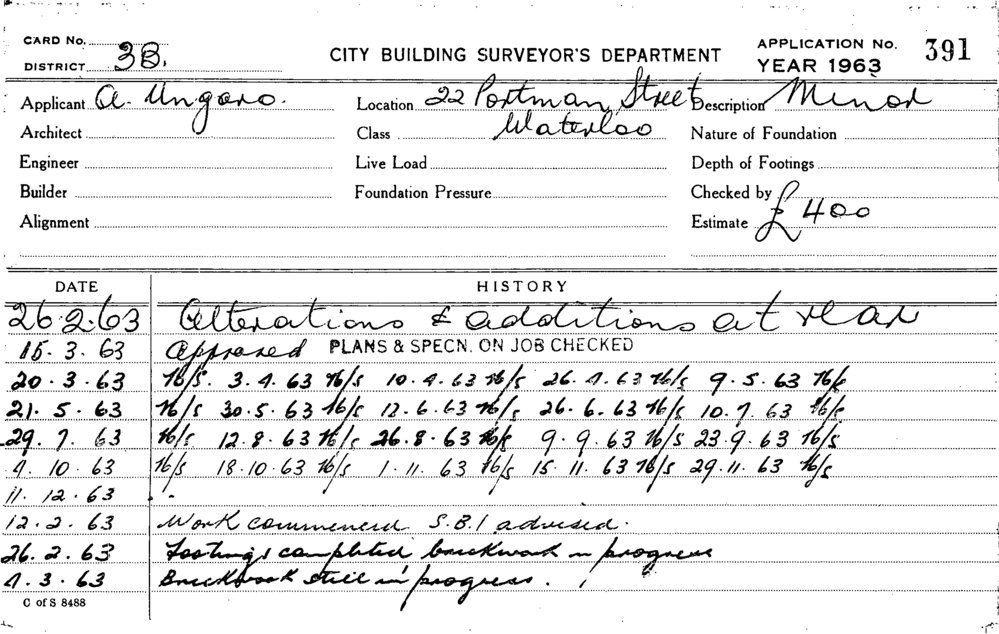 CARD No.
DISTRICT 3B.
CITY BUILDING SURVEYOR'S DEPARTMENT
APPLICATION No. 391
YEAR 1963
Applicant A. Ungaro. Location 22 Portman Street Description Minor
Architect Class Waterloo Nature of Foundation
Engineer Live Load Depth of Footings
Builder Foundation Pressure Checked by
Alignment Estimate £400
DATE HISTORY
26.2.63 Alterations & additions at rear
15.3.63 Approved PLANS & SPECN. ON JOB CHECKED
20.3.63 N/S. 3.4.63 N/S 10.4.63 N/S 26.4.63 N/S 9.5.63 N/S
21.5.63 N/S 30.5.63 N/S 12.6.63 N/S 26.6.63 N/S 10.7.63 N/S
29.7.63 N/S 12.8.63 N/S 26.8.63 N/S 9.9.63 N/S 23.9.63 N/S
4.10.63 N/S 18.10.63 N/S 1.11.63 N/S 15.11.63 N/S 29.11.63 N/S
11.12.63
12.2.63 Work commenced S.B.I advised.
26.2.63 Footings completed brickwork in progress
4.3.63 Brickwork still in progress.
C of S 8488